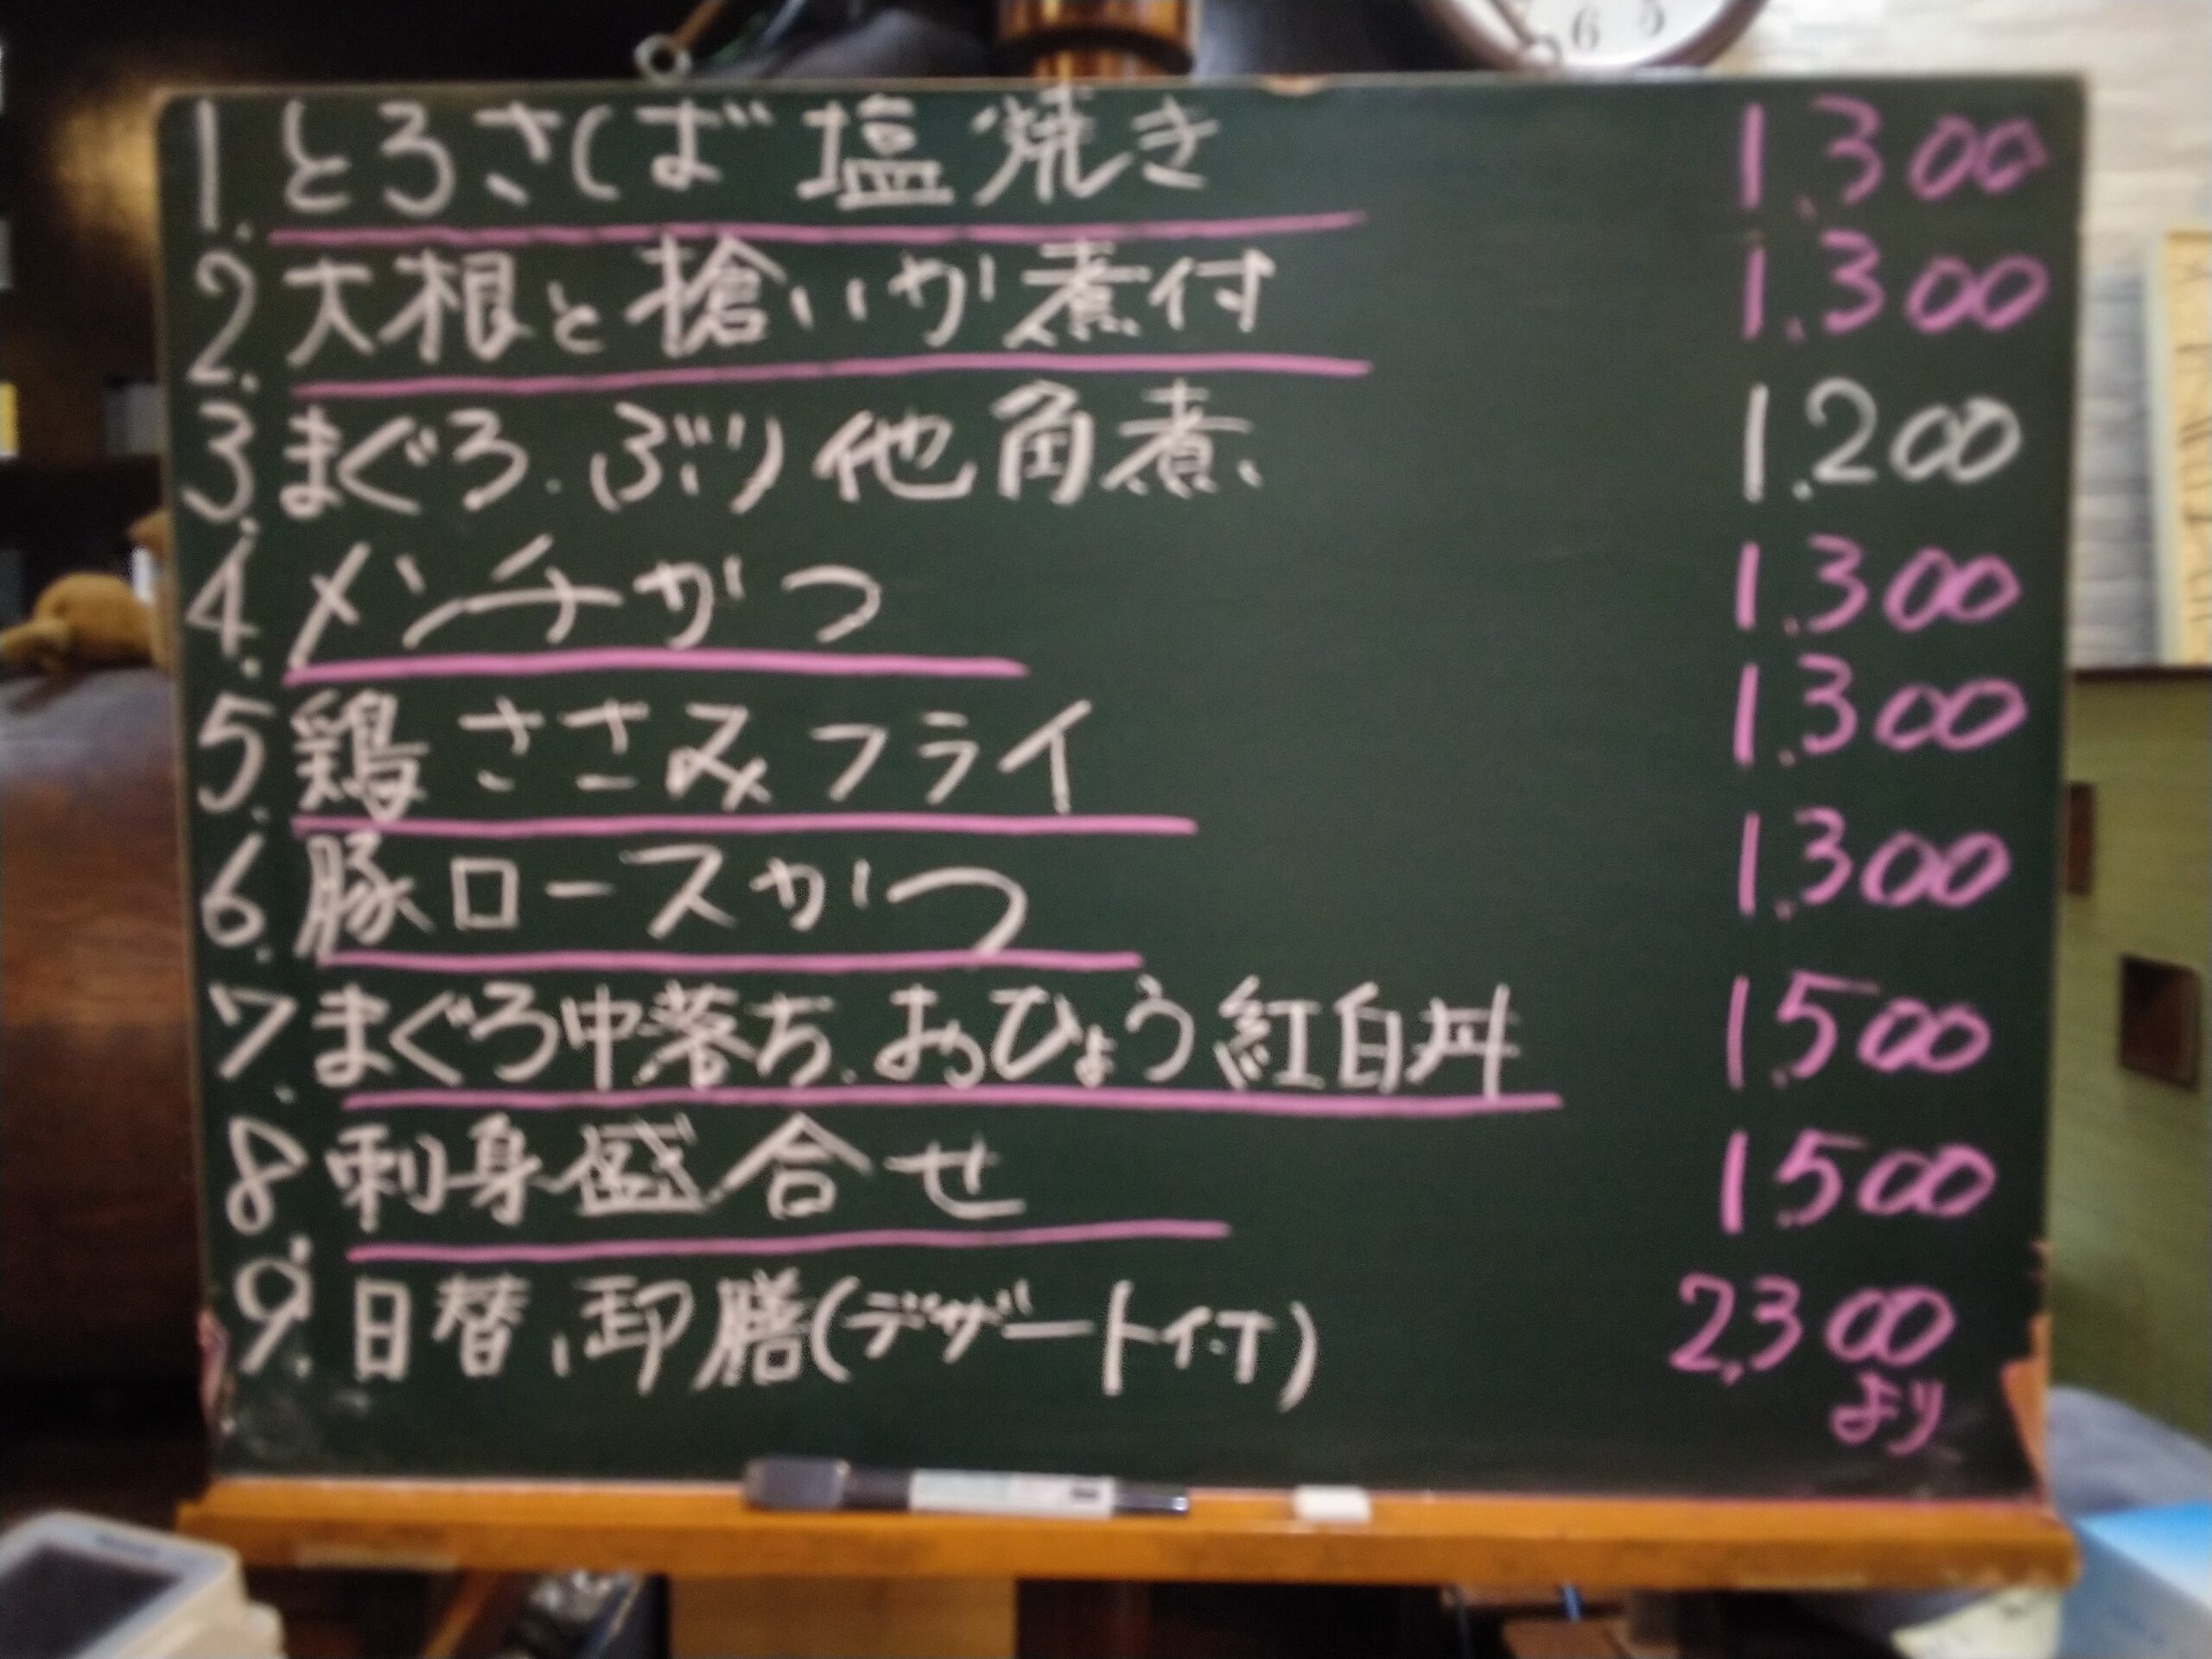 1. とろさば塩焼き 1.300
2. 大根と槍いか煮付 1.300
3. まぐろ.ぶり他角煮 1.200
4. メンチかつ 1.300
5. 鶏ささみフライ 1.300
6. 豚ロースかつ 1.300
7. まぐろ中落ち.おひょう紅白丼 1.500
8 刺身盛合せ 1.500
9. 日替り御膳(デザート付) 2,300
より